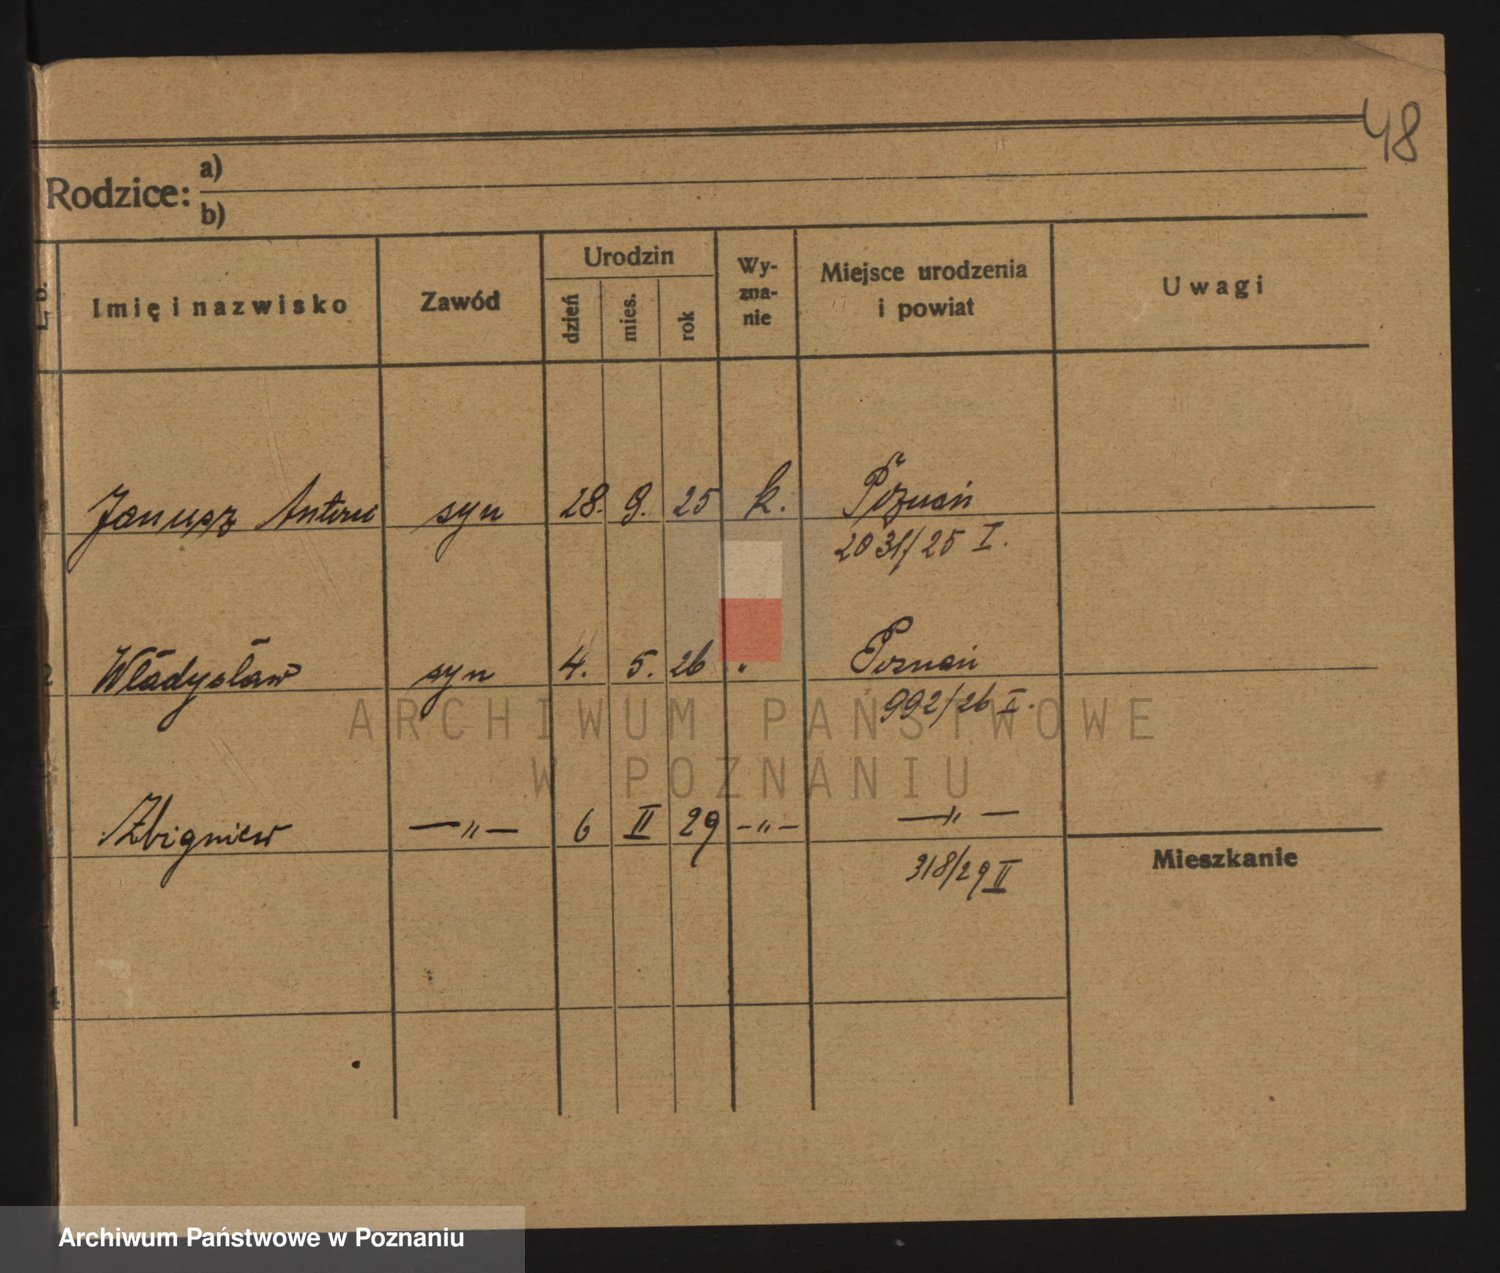 48
Rodzice: a)
b)
L. b.
Imię i nazwisko
Zawód
Urodzin
dzień
mies.
rok
Wy-
zna-
nie
Miejsce urodzenia
i powiat
Uwagi
Janusz Antoni syn 28. 9. 25 k. Poznań
2031/25 I.
2 Władysław syn 4. 5. 26 " Poznań
992/26 I.
Zbigniew —"— 6 II 29 -"- —"—
318/29 II
Mieszkanie
4
ARCHIWUM PAŃSTWOWE
W POZNANIU
Archiwum Państwowe w Poznaniu